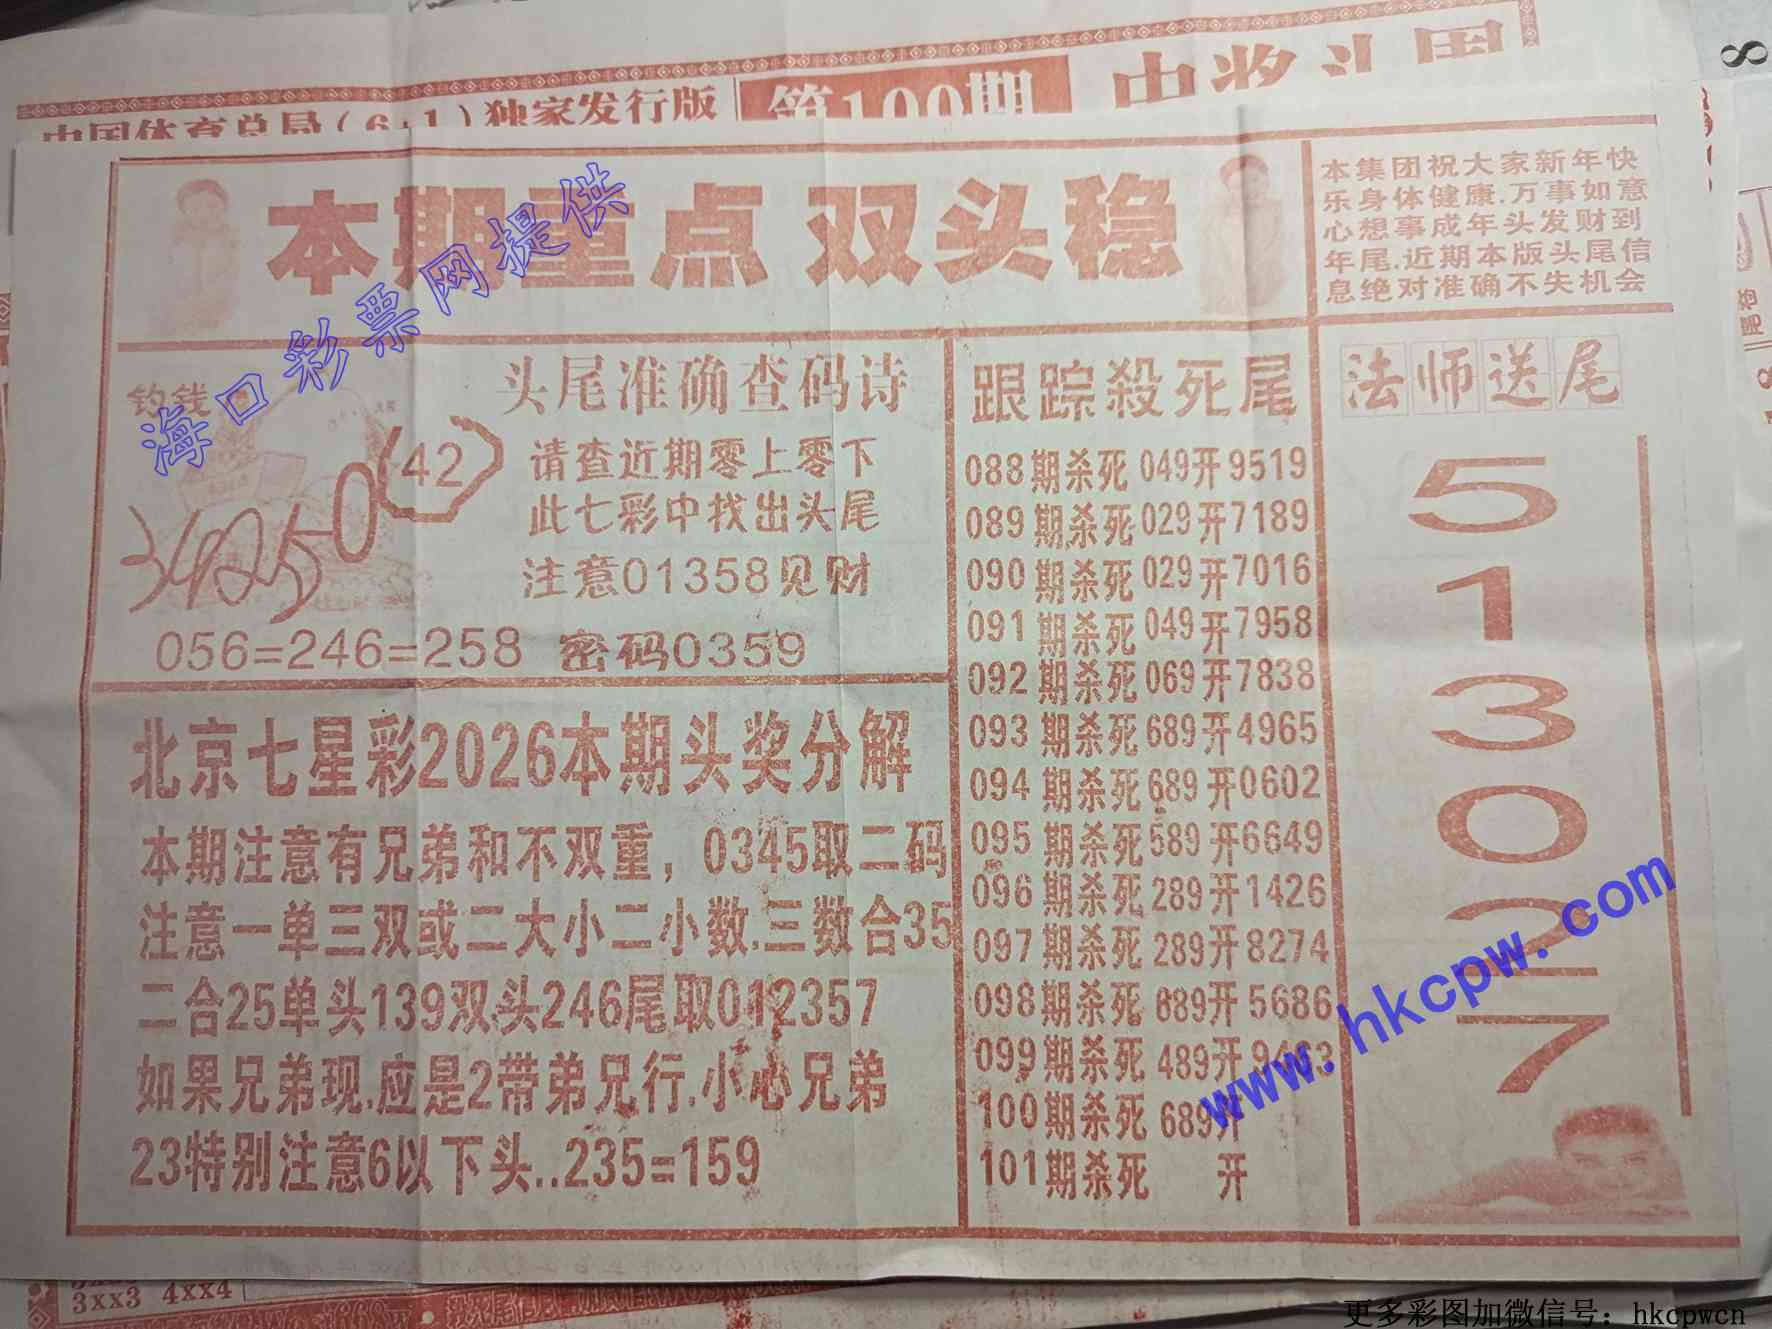 中国体育总局(6+1)独家发行版
第100期
中奖斗国
8
本期重点 双头稳
本集团祝大家新年快
乐身体健康.万事如意
心想事成年头发财到
年尾.近期本版头尾信
息绝对准确不失机会
海口彩票网提供
钓钱
头尾准确查码诗
34250
(42)
请查近期零上零下
此七彩中找出头尾
注意01358见财
056=246=258 密码0359
北京七星彩2026本期头奖分解
本期注意有兄弟和不双重，0345取二码
注意一单三双或二大小二小数.三数合35
二合25单头139双头246尾取012357
如果兄弟现.应是2带弟兄行.小心兄弟
23特别注意6以下头..235=159
跟踪殺死尾
088期杀死049开9519
089期杀死029开7189
090期杀死029开7016
091期杀死049开7958
092期杀死069开7838
093期杀死689开4965
094期杀死689开0602
095期杀死589开6649
096期杀死289开1426
097期杀死289开8274
098期杀死689开5686
099期杀死489开9463
100期杀死689开
101期杀死 开
法师送尾
5
1
3
0
2
7
www.hkcpw.com
3xx3 4xx4
更多彩图加微信号：hkcpwcn